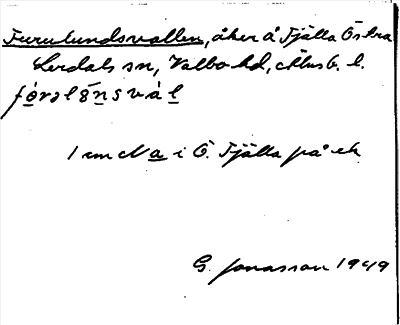 Furulundsvallen, åker å Fjälla Östra
Lerdals sn, Valbo hd, Älvsb. l.
fórəlô̱nsvál
1 cm N a i Ö. Fjälla på ek
G. Jonasson 1949